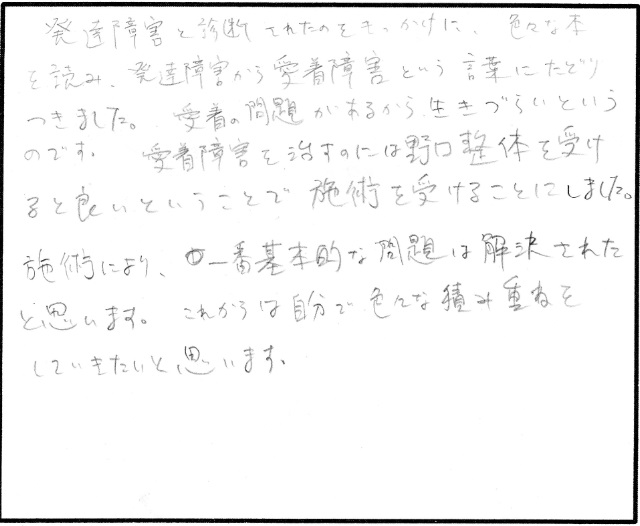 発達障害と診断されたのをきっかけに、色々な本
を読み、発達障害から愛着障害という言葉にたどり
つきました。愛着の問題があるから生きづらいという
のです。愛着障害を治すのには野口整体を受け
ると良いということで施術を受けることにしました。
施術により、一番基本的な問題は解決された
と思います。これからは自分で色々な積み重ねを
していきたいと思います。